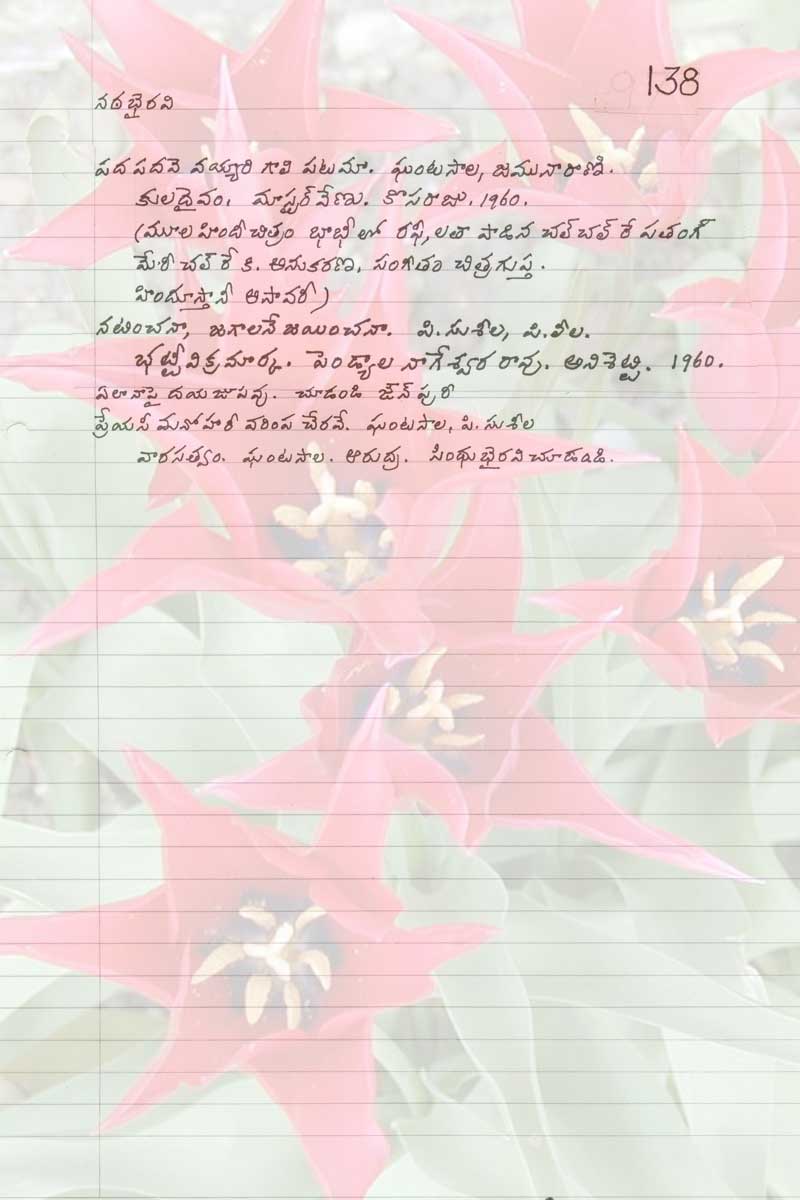 138
నఠభైరవి
పద పదవె వయ్యారి గాలి పటమా. ఘంటసాల, జమునారాణి.
కులదైవం. మాస్టర్ వేణు. కొసరాజు. 1960.
(మూల హిందీ చిత్రం భాభీ లో రఫీ, లతా పాడిన చల్ చల్ రే పతంగ్
మేరీ చల్ రే కి. అనుకరణ, సంగీతం చిత్రగుప్త.
హిందూస్తానీ ఆసావరి)
నటించనా, జగాలనే జయించనా. పి. సుశీల, పి. లీల.
భట్టి విక్రమార్క. పెండ్యాల నాగేశ్వర రావు. అనిశెట్టి. 1960.
ఏలా నాపై దయజూపవు. చూడండి జోన్ పురి
ప్రేయసీ మనోహారి వరించి చేరవే. ఘంటసాల, పి. సుశీల
వారసత్వం. ఘంటసాల. ఆరుద్ర. సింధుభైరవి చూడండి.